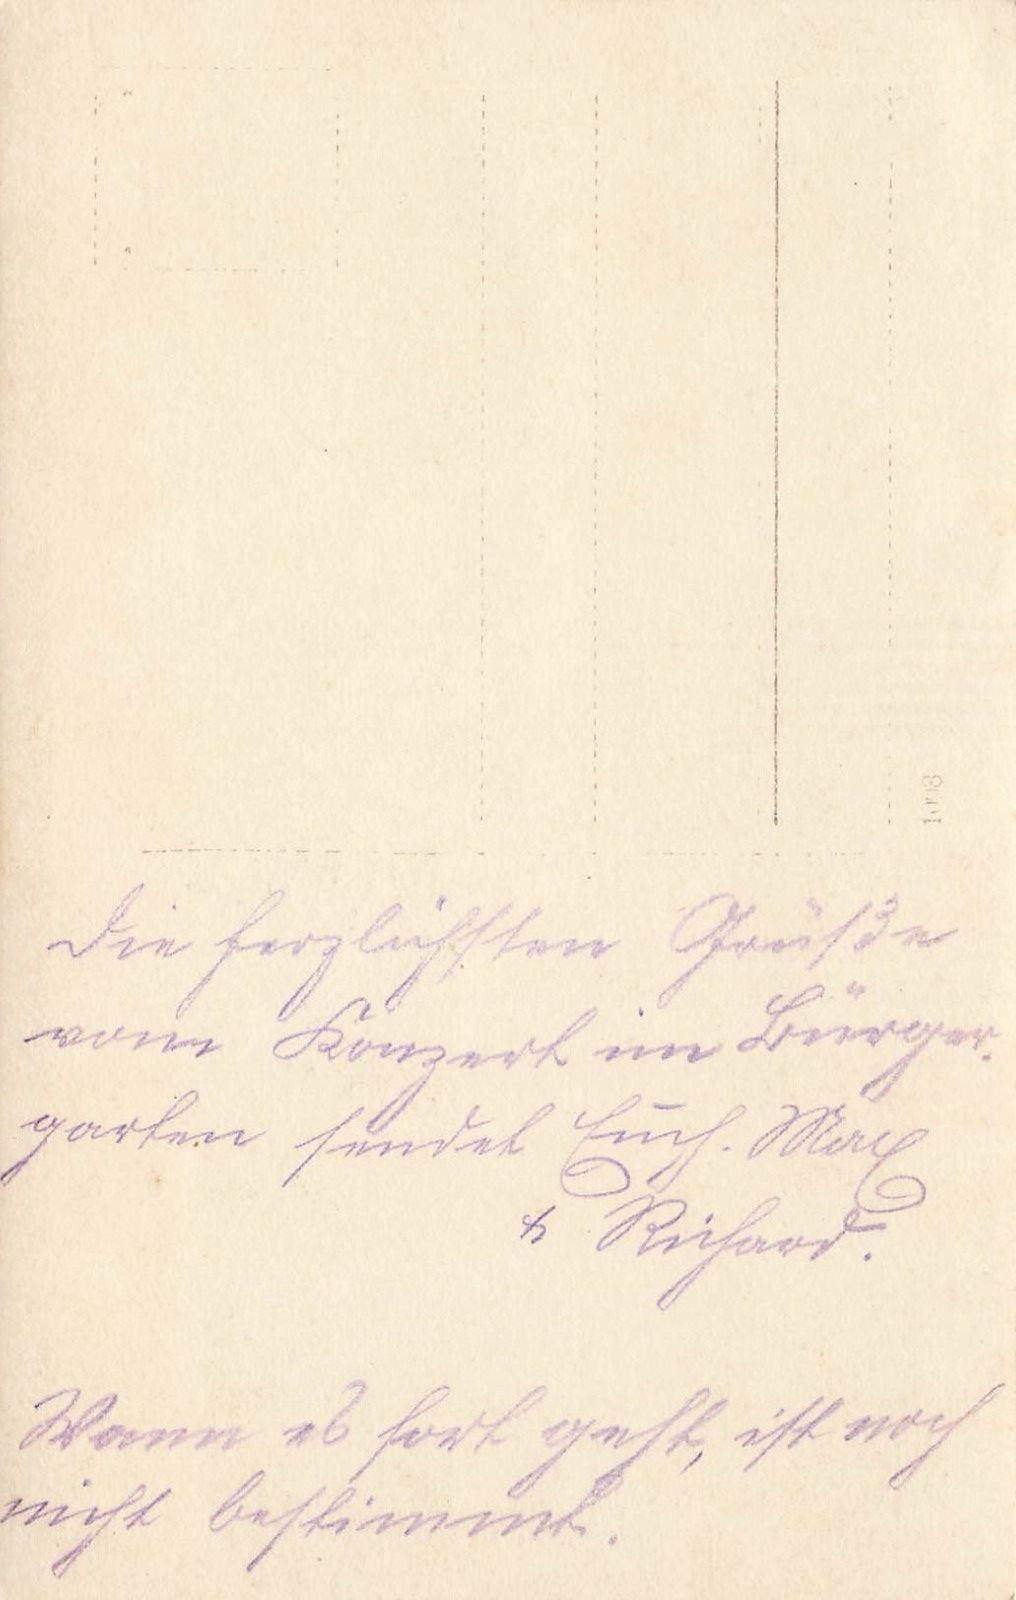 1008
Die herzlichsten Grüße
vom Konzert im Bürger-
garten sendet Euch. Max
& Richard.
Wann es fort geht, ist noch
nicht bestimmt.